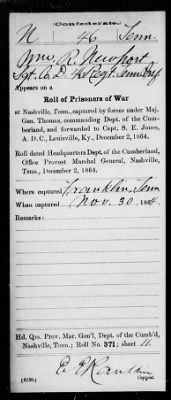 (Confederate.)
N 46 Tenn.
Wm. R. Newport
Sgt. Co. D, 46 Regt. Tenn. Inf
Appears on a
Roll of Prisoners of War
at Nashville, Tenn., captured by forces under Maj.
Gen. Thomas, commanding Dept. of the Cum-
berland, and forwarded to Capt. S. E. Jones,
A. D. C., Louisville, Ky., December 2, 1864.
Roll dated Headquarters Dept. of the Cumberland,
Office Provost Marshal General, Nashville,
Tenn., December 2, 1864.
Where captured Franklin, Tenn
When captured Nov. 30, 1864.
Remarks:
Hd. Qrs. Prov. Mar. Gen'l, Dept. of the Cumb'd,
Nashville, Tenn.; Roll No. 371; sheet 11
Copyist.